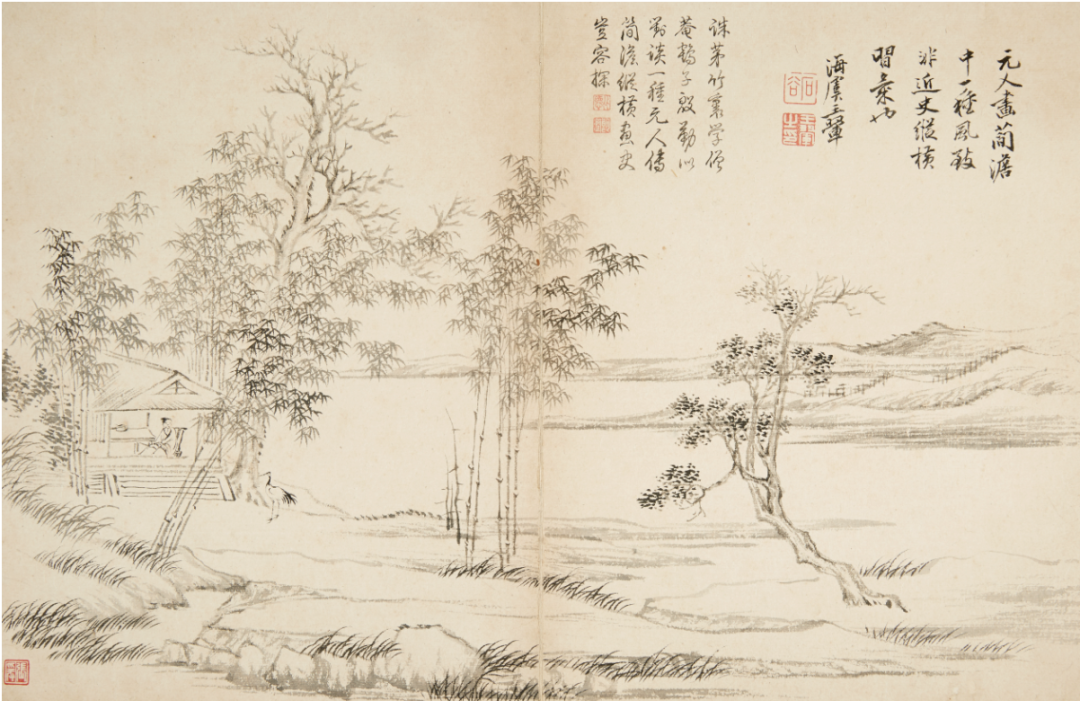 元人畫簡澹
中一種風致
非近史縱橫
習氣也
海虞王翬
石谷
王翬之印
誅茅竹裏學僧
菴鶴子殷勤似
對談一種元人傳
簡澹縱橫畫史
豈容探